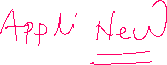 Appli New